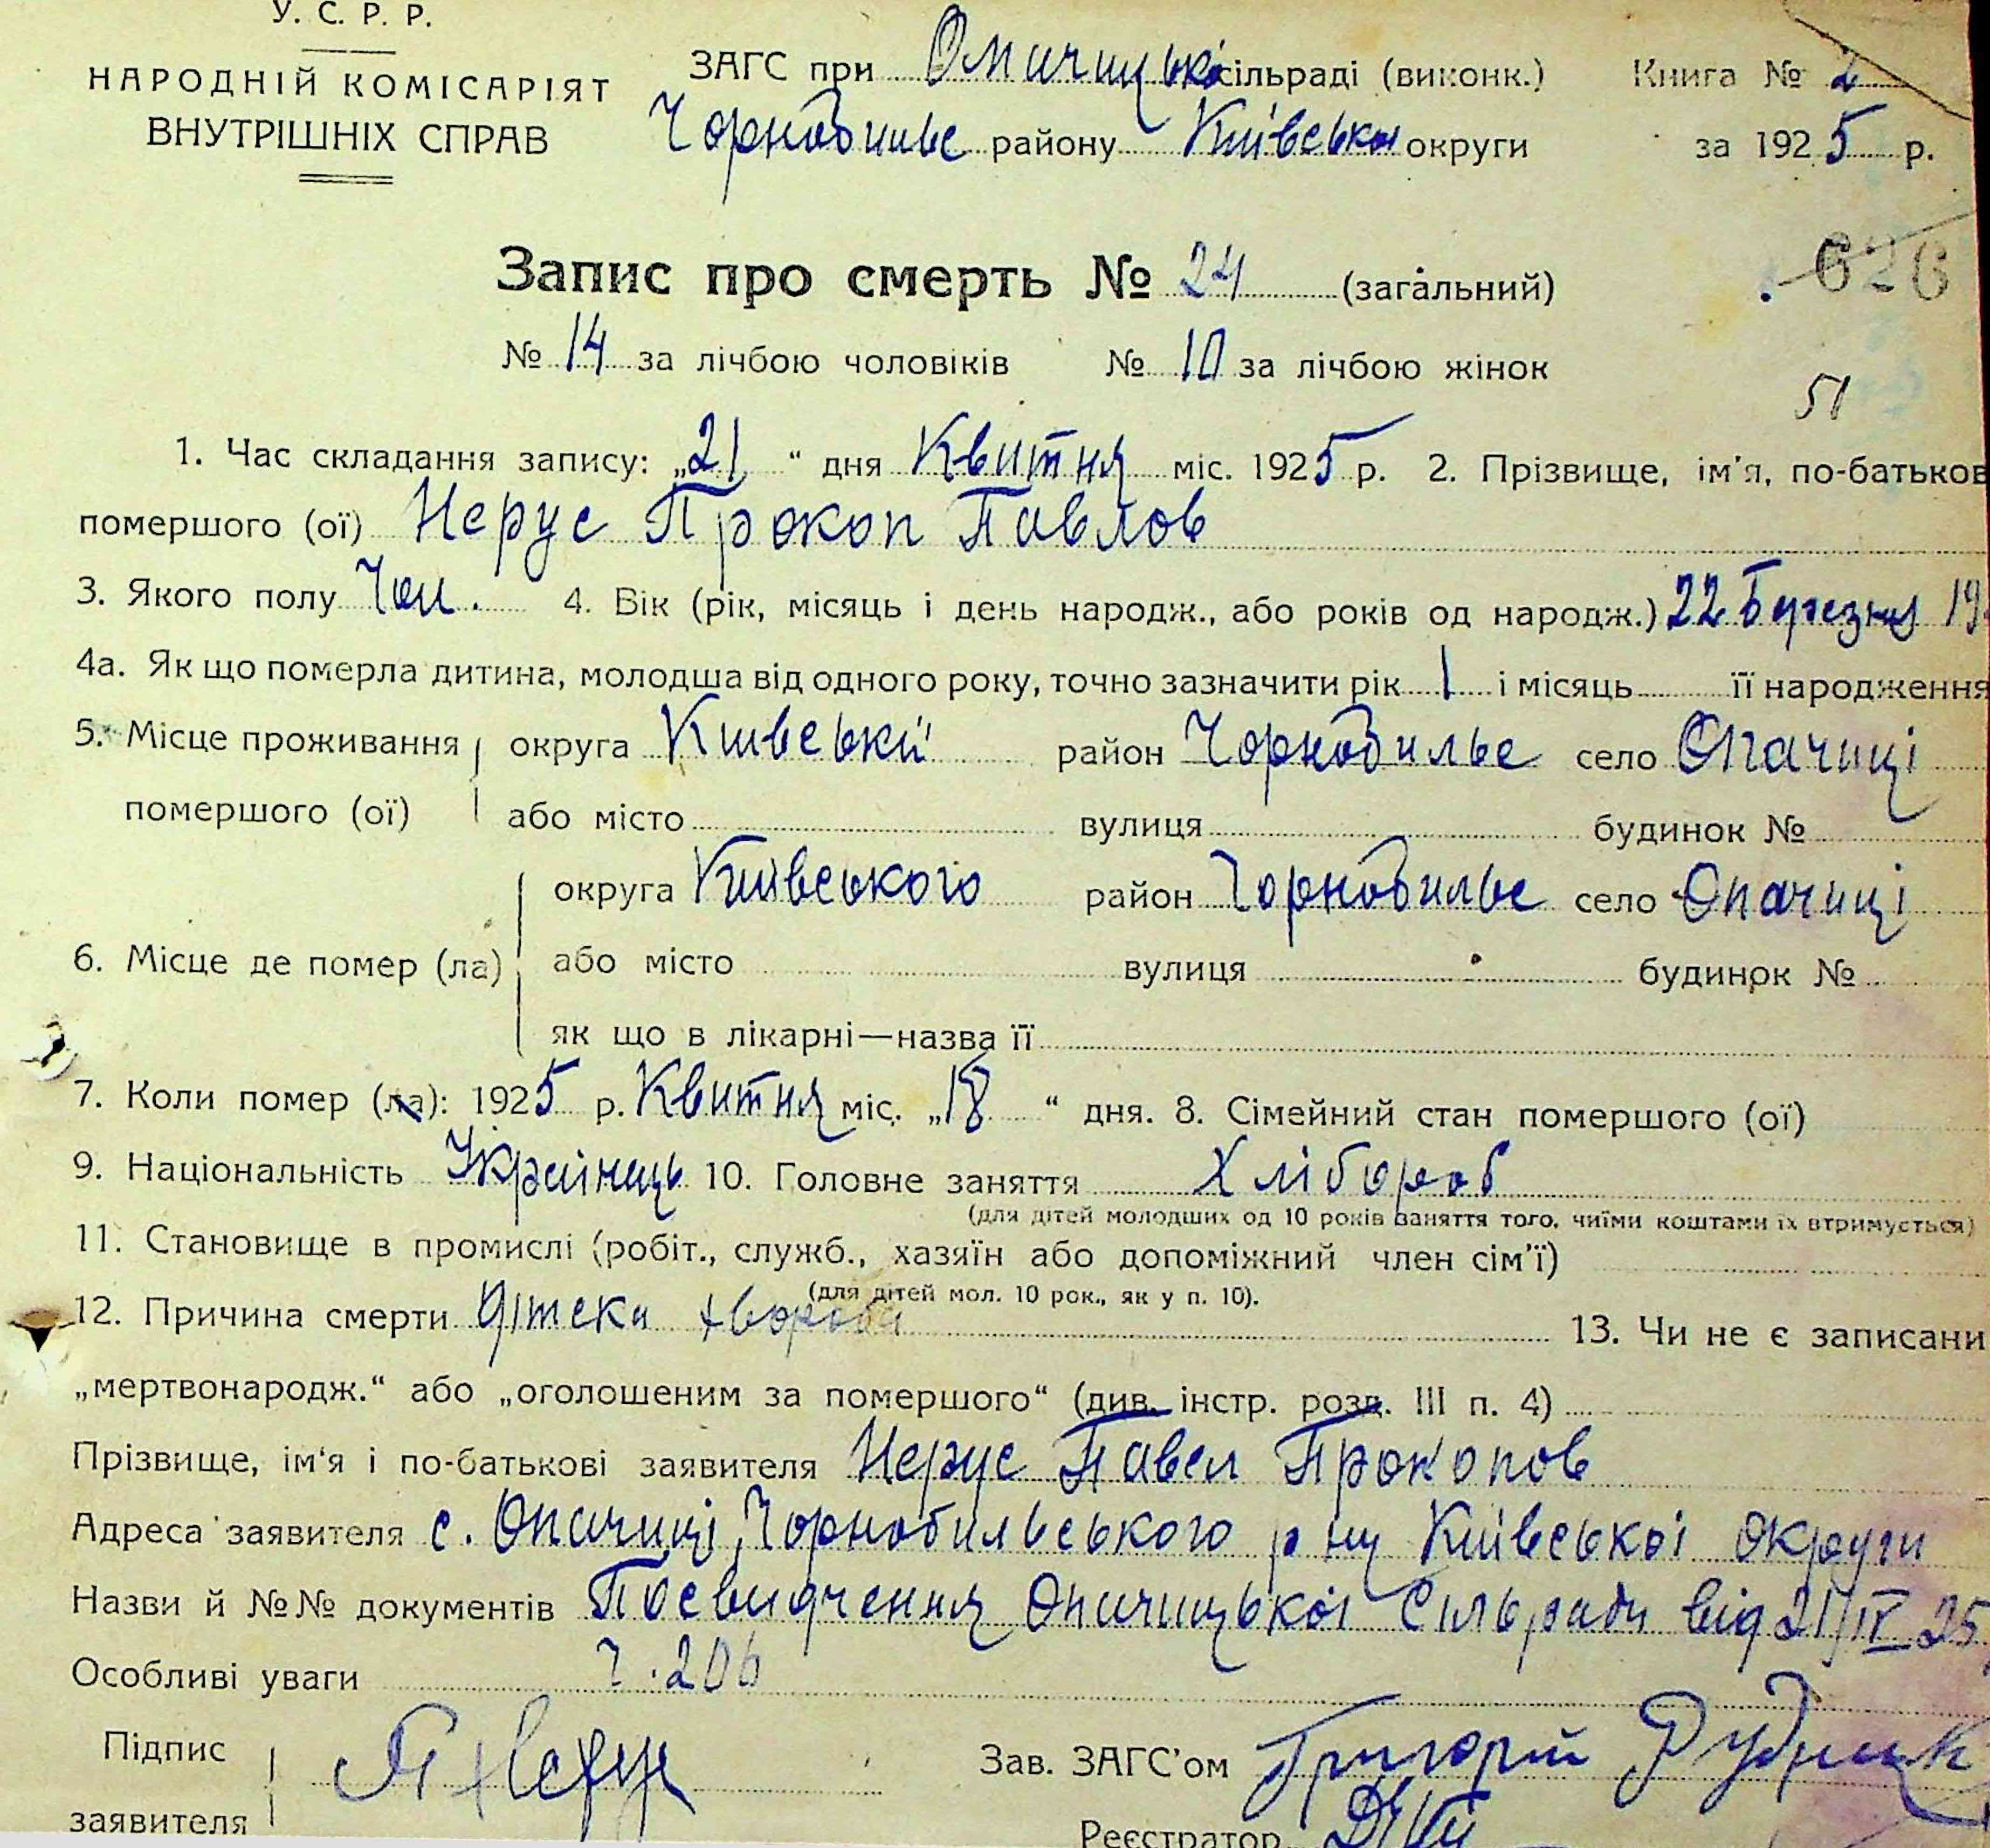 У. С. Р. Р.
НАРОДНІЙ КОМІСАРІЯТ
ВНУТРІШНІХ СПРАВ
ЗАГС при сільраді (виконк.) Книга № 2
Чорнобильс району Київської округи за 1925 р.
Запис про смерть № 24 (загальний)
626
№ 14 за лічбою чоловіків № 10 за лічбою жінок
51
1. Час складання запису: „21 “ дня Квитня міс. 1925 р. 2. Прізвище, ім'я, по-батьков
помершого (ої) Нерус Прокоп Павлов
3. Якого полу Чол. 4. Вік (рік, місяць і день народж., або років од народж.) 22 Березня 19
4а. Як що померла дитина, молодша від одного року, точно зазначити рік 1 і місяць її народження
5. Місце проживання округа район Чорнобильс село Опачиці
помершого (ої) або місто вулиця будинок №
округа Київського район Чорнобильс село Опачиці
6. Місце де помер (ла) або місто вулиця будинок №
як що в лікарні—назва її
7. Коли помер (ла): 1925 р. Квитня міс. „18 “ дня. 8. Сімейний стан помершого (ої)
9. Національність Українець 10. Головне заняття Хлібороб
(для дітей молодших од 10 років заняття того, чиїми коштами їх втримується)
11. Становище в промислі (робіт., служб., хазяїн або допоміжний член сім'ї)
(для дітей мол. 10 рок., як у п. 10).
12. Причина смерти хвороба 13. Чи не є записани
„мертвонародж.“ або „оголошеним за помершого“ (див. інстр. розд. III п. 4)
Прізвище, ім'я і по-батькові заявителя Нерус Павел Прокопов
Адреса заявителя с. Опачиці, Чорнобильського р ну Київської округи
Назви й №№ документів Посвидчення Опачицької Сільради від 21/IV 25
Особливі уваги ч. 206
Підпис
заявителя
Зав. ЗАГС'ом Григорій Рудник
Реєстратор